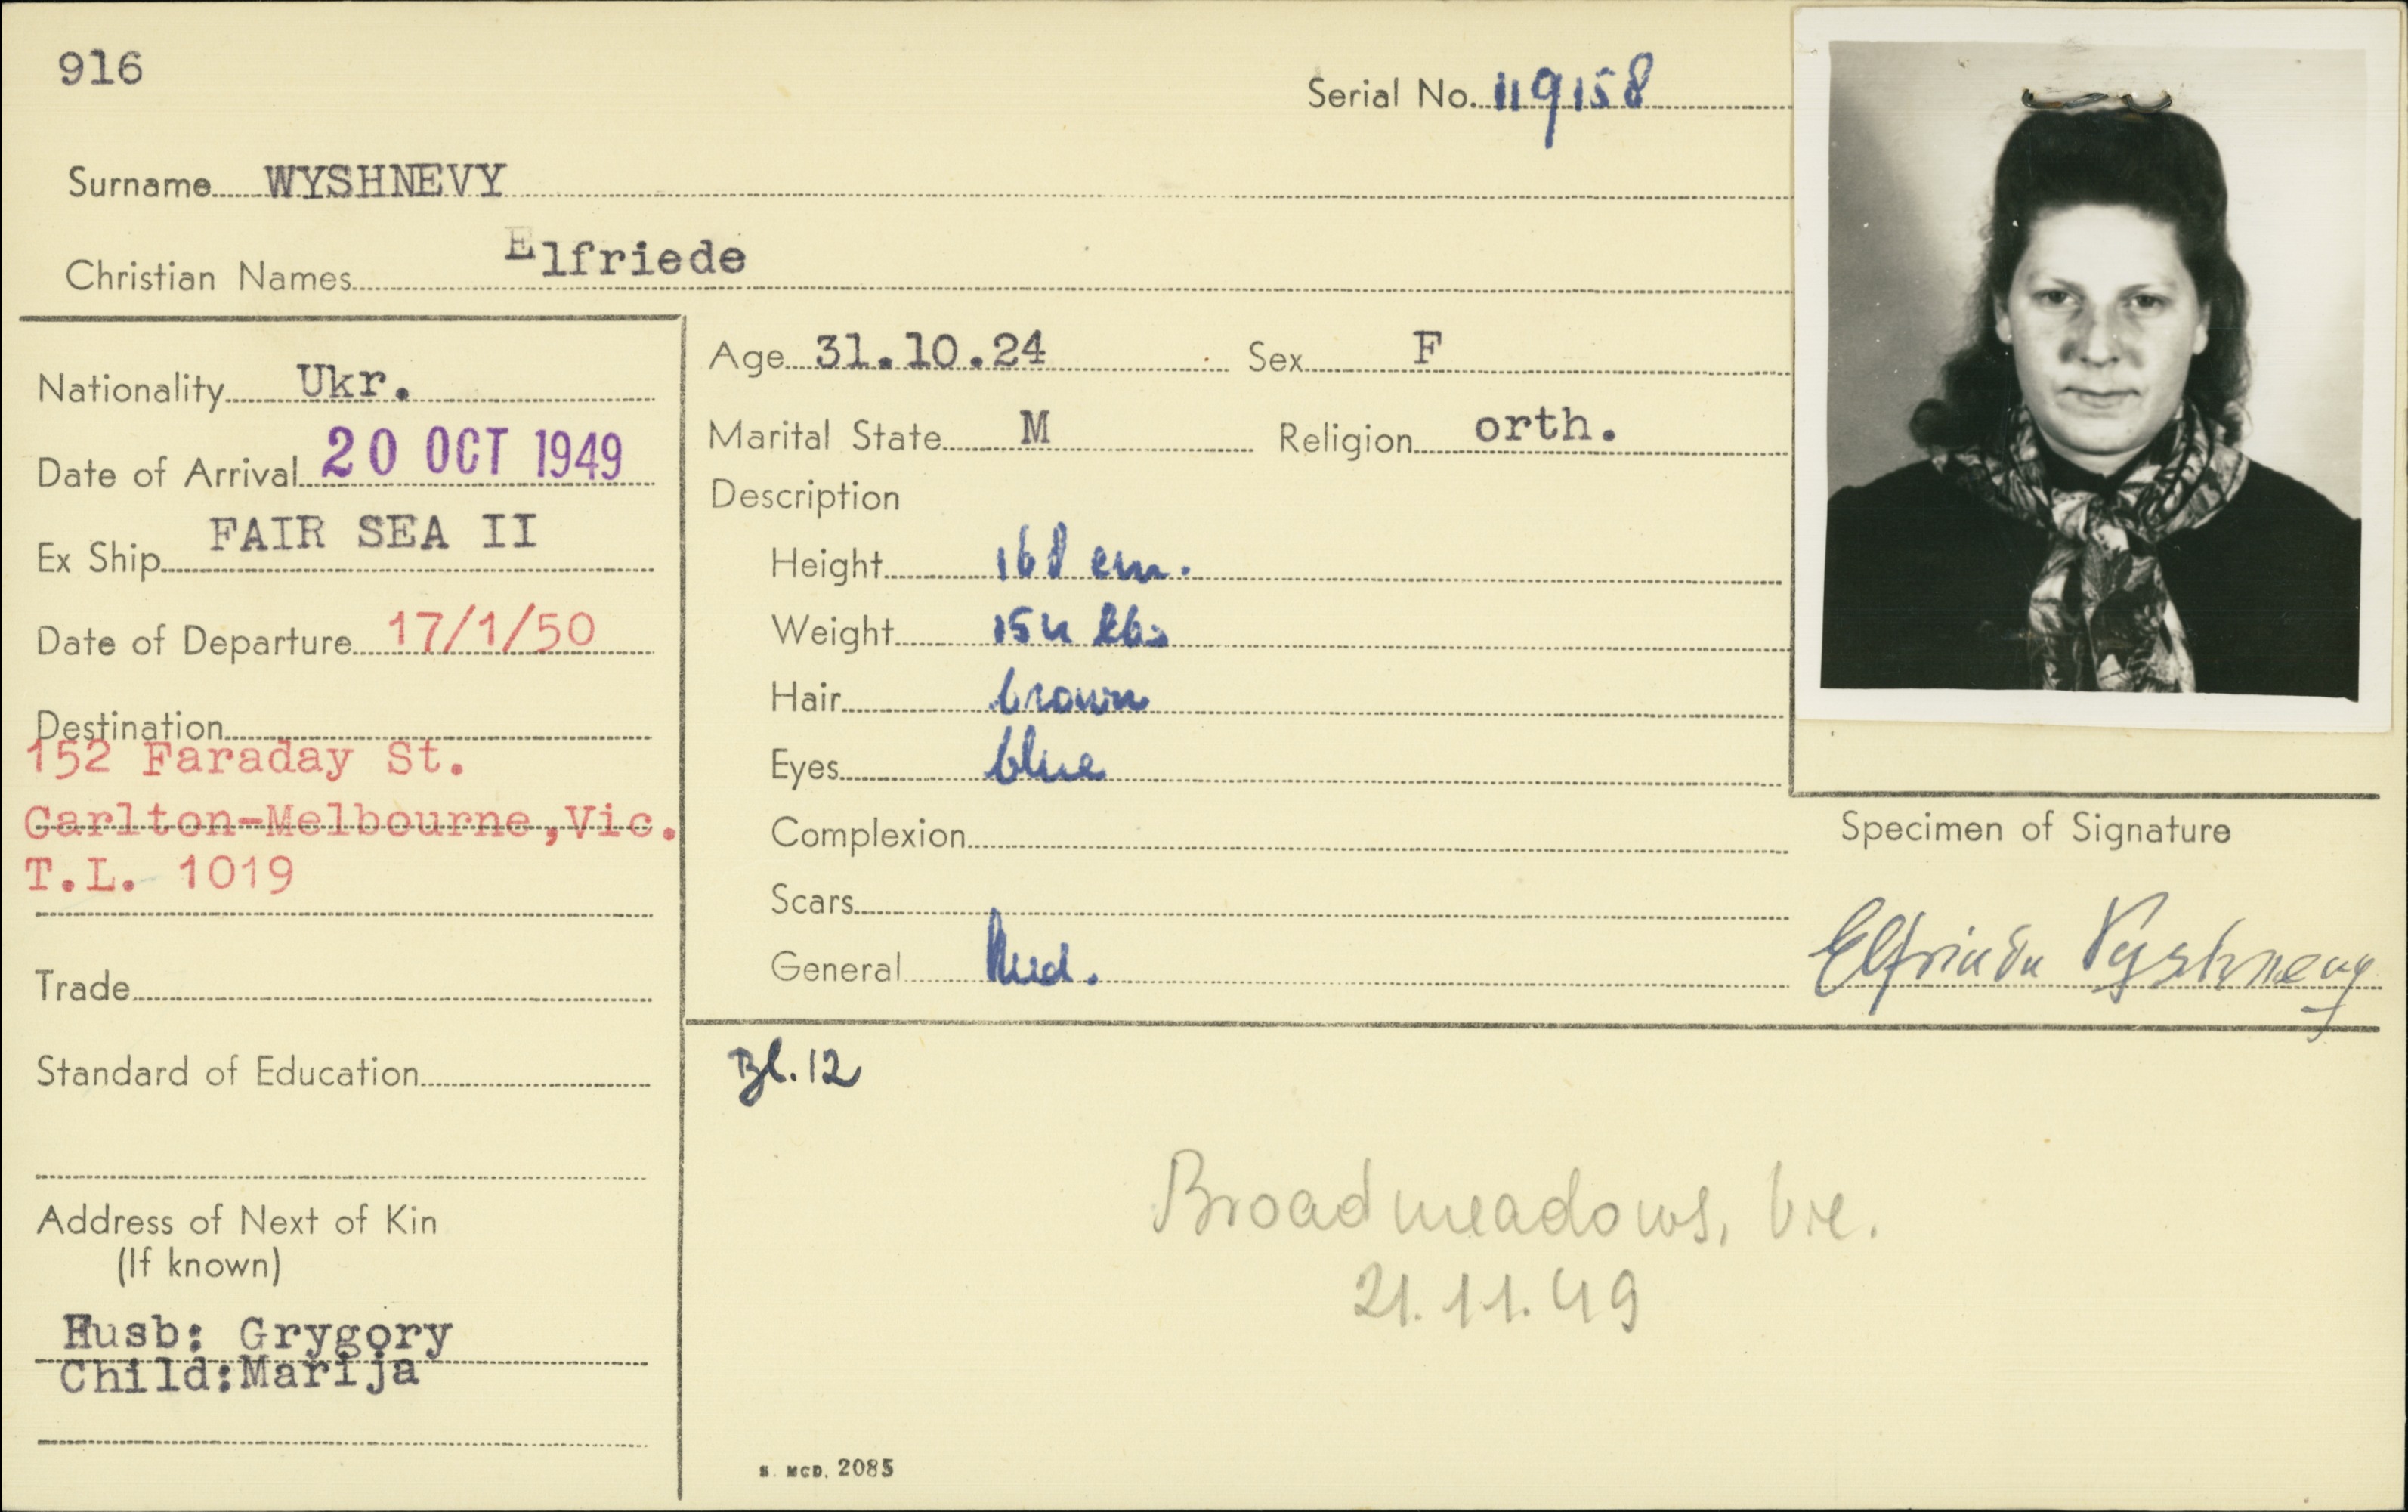 916
Serial No. 119158
Surname WYSHNEVY
Christian Names Elfriede
Nationality Ukr.
Date of Arrival 20 OCT 1949
Ex Ship FAIR SEA II
Date of Departure 17/1/50
Destination
152 Faraday St.
Carlton-Melbourne,Vic.
T.L. 1019
Trade
Standard of Education
Address of Next of Kin
(If known)
Husb: Grygory
Child:Marija
Age 31.10.24 Sex F
Marital State M Religion orth.
Description
Height 168 cm.
Weight 154 lbs
Hair brown
Eyes blue
Complexion
Scars
General Med.
Specimen of Signature
Elfriede Vyshnevy
Bl. 12
Broadmeadows, Vic.
21.11.49
S. MCD. 2085